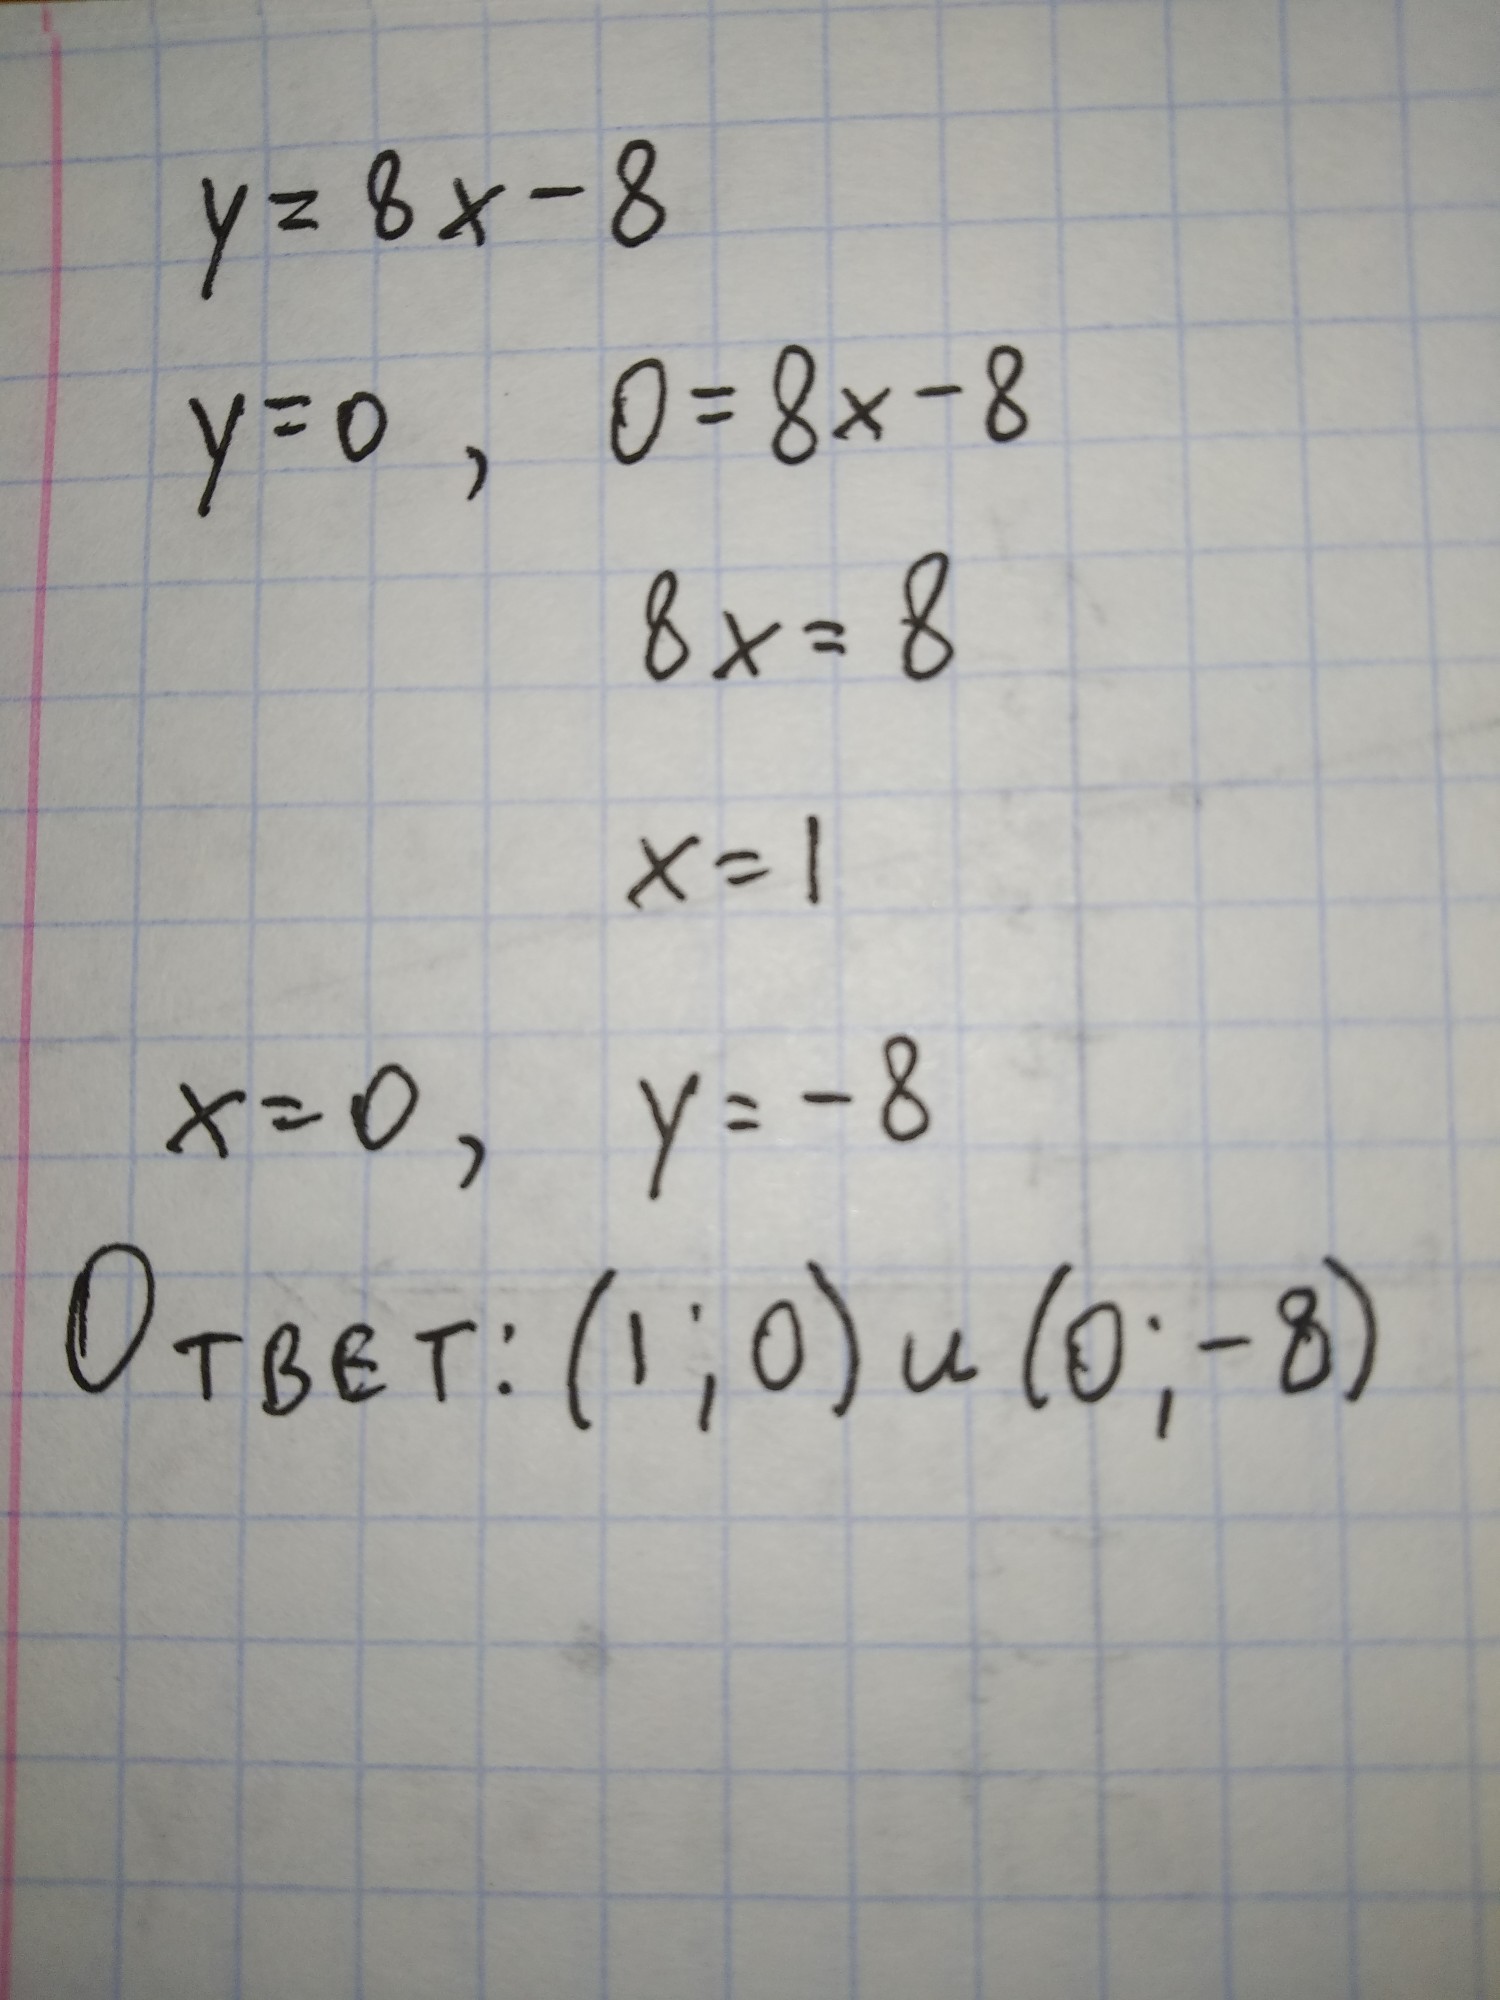 y = 8x - 8
y = 0, 0 = 8x - 8
8x = 8
x = 1
x = 0, y = -8
Ответ: (1; 0) и (0; -8)